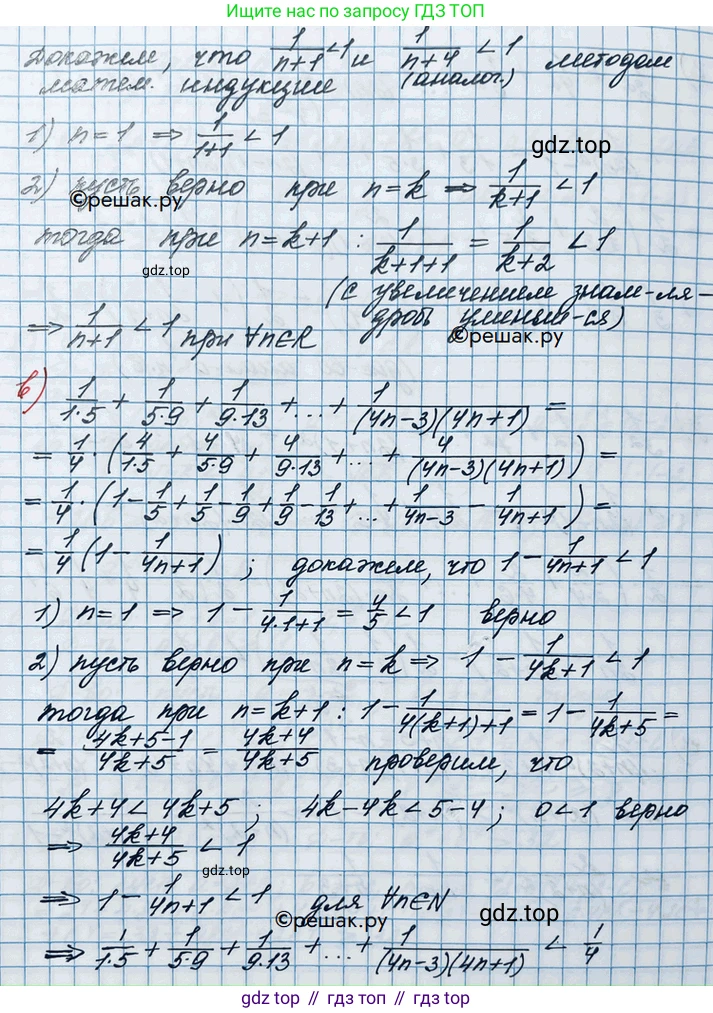 Ищите нас по запросу ГДЗ ТОП
Докажем, что 1/(n+1) < 1 и 1/(n+4) < 1 методом
матем. индукции (аналог.)
1) n=1 ⇒ 1/(1+1) < 1
gdz.top
2) пусть верно при n=k ⇒ 1/(k+1) < 1
©решак.ру
тогда при n=k+1 : 1/(k+1+1) = 1/(k+2) < 1
gdz.top
(с увеличением знам-ля-
дробь уменьш-ся)
⇒ 1/(n+1) < 1 при ∀n∈R
©решак.ру
в) 1/(1·5) + 1/(5·9) + 1/(9·13) + ... + 1/((4n-3)(4n+1)) =
= 1/4 · (4/(1·5) + 4/(5·9) + 4/(9·13) + ... + 4/((4n-3)(4n+1))) =
= 1/4 · (1 - 1/5 + 1/5 - 1/9 + 1/9 - 1/13 + ... + 1/(4n-3) - 1/(4n+1)) =
= 1/4 (1 - 1/(4n+1)) ; докажем, что 1 - 1/(4n+1) < 1
1) n=1 ⇒ 1 - 1/(4·1+1) = 4/5 < 1 верно
2) пусть верно при n=k ⇒ 1 - 1/(4k+1) < 1
тогда при n=k+1 : 1 - 1/(4(k+1)+1) = 1 - 1/(4k+5) =
= (4k+5-1)/(4k+5) = (4k+4)/(4k+5) проверим, что
4k+4 < 4k+5 ; 4k-4k < 5-4 ; 0<1 верно
⇒ (4k+4)/(4k+5) < 1
gdz.top
⇒ 1 - 1/(4n+1) < 1 для ∀n∈N
©решак.ру
gdz.top
⇒ 1/(1·5) + 1/(5·9) + 1/(9·13) + ... + 1/((4n-3)(4n+1)) < 1/4
gdz top // гдз топ // gdz.top